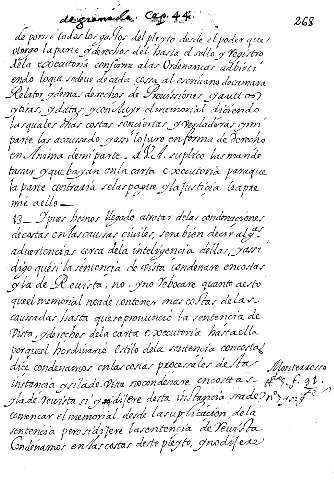 de granada. Cap. 44.
268
de poner todos los gastos del pleyto desde el poder que
otorgo la parte, y derechos del hasta el sello y registro
de la executoria conforme a las Ordenanças advirti
endo lo que se deve de cada cosa al escrivano de camara
Relator, y demas derechos de Provissiones, y autto
y tiras, y datas, y concluyr el memorial diciendo
las quales dhas costas son ciertas, y verdaderas y mi
parte las a caussado, y assi lo juro en forma de derecho
en Anima de mi parte. A V.A. suplico las mande
tassar y que vayan en la carta executoria para que
la parte contraria se las pague y la justicia le apre
mie a ello
13 Y pues hemos llegado a tratar de las condenaciones
de costas en las caussas civiles, sera bien decir algs.
advertencias cerca de la inteligencia dellas, y assi
digo que si la sentencia de vista condenare en costas
y la de Revista, no, y no revocare quanto a esto
que el memorial no a de contener mas costas de las
caussadas hasta que se pronunció la sentencia de
vista, y derechos de la carta executoria hasta ella
porque el hordinario estilo de la sentencia con costas
dice condenamos en las costas procesales desta
instancia y si la de vista no condenare en costtas
y la de revista si y dijere desta instancia sea de
començar el memorial desde la suplicacion de la
sentencia pero si dijere la sentencia de revista
Condenamos en las costas deste pleyto, y no dijere
Monterroso
f. 91.